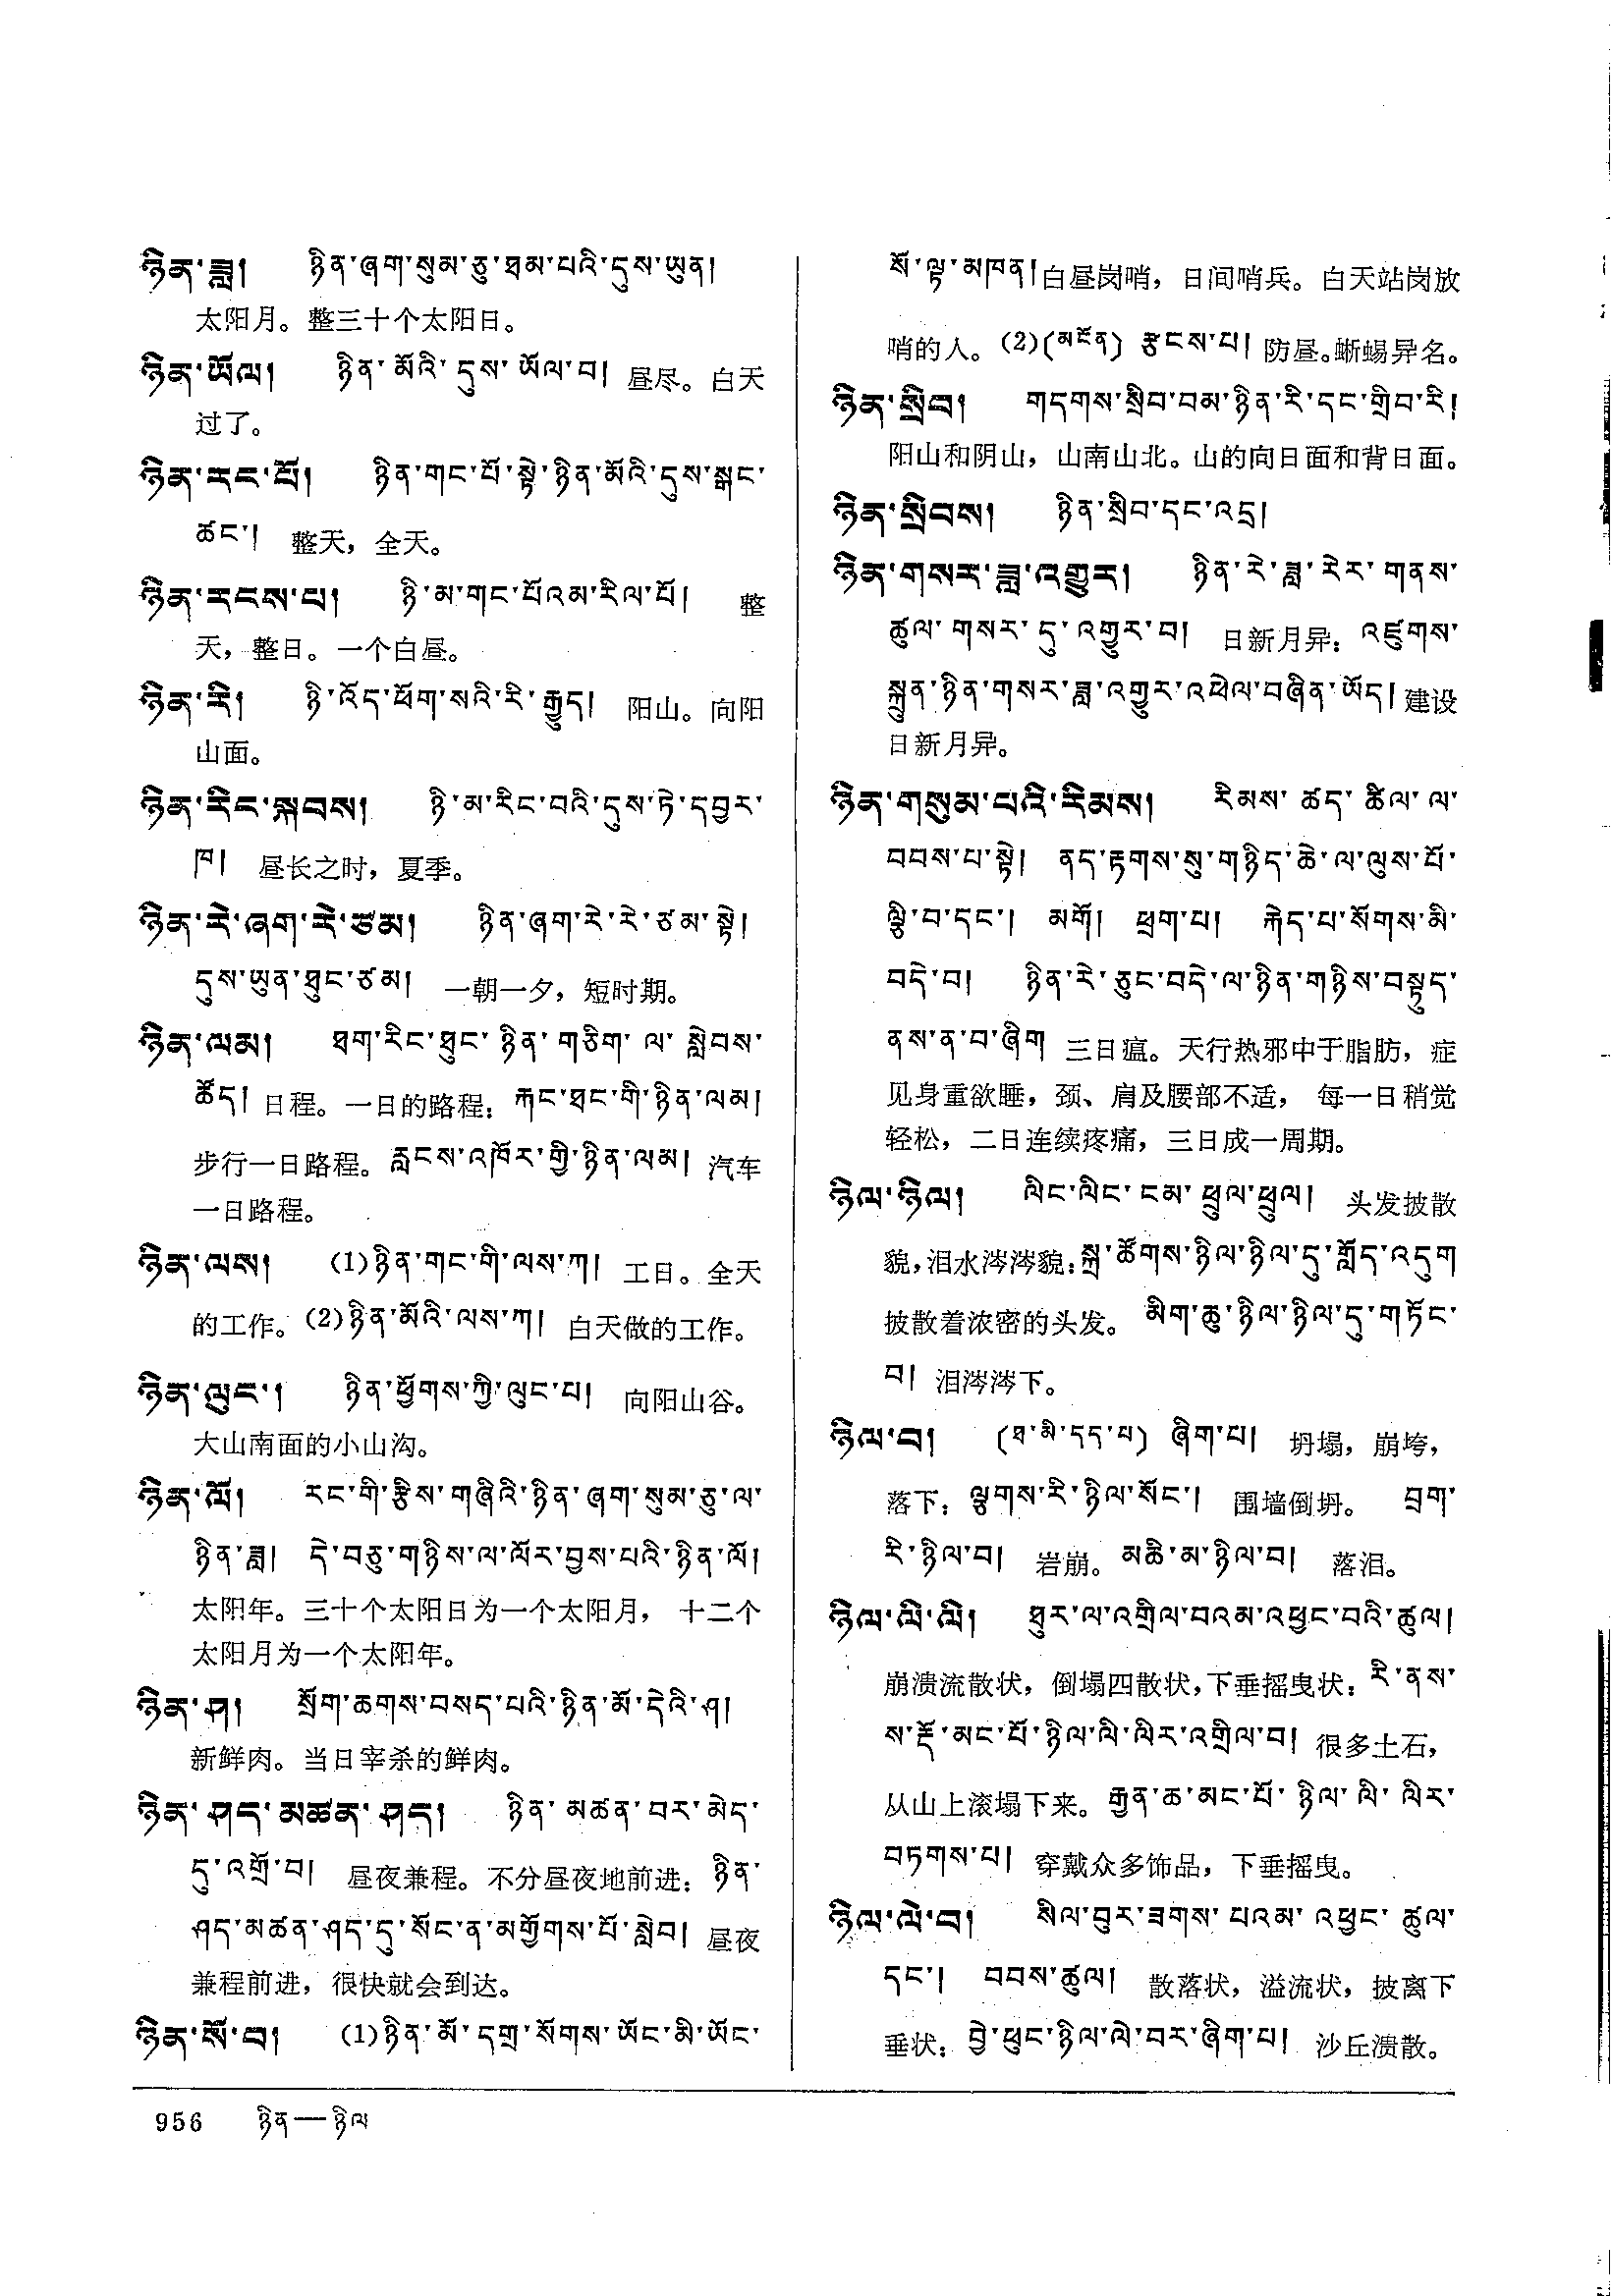 ཉིན་ཟླ། ཉིན་ཞག་སུམ་ཅུ་ཐམ་པའི་དུས་ཡུན།
太阳月。整三十个太阳日。
ཉིན་ཡོལ། ཉིན་མོའི་དུས་ཡོལ་བ། 昼尽。白天
过了。
ཉིན་རང་པོ། ཉིན་གང་པོ་སྟེ་ཉིན་མོའི་དུས་སྒང་
ཚང་། 整天，全天。
ཉིན་རངས་པ། ཉི་མ་གང་པོའམ་རིལ་པོ། 整
天，整日。一个白昼。
ཉིན་རི། ཉི་འོད་ཕོག་སའི་རི་རྒྱུད། 阳山。向阳
山面。
ཉིན་རིང་སྐབས། ཉི་མ་རིང་བའི་དུས་ཏེ་དབྱར་
ཁ། 昼长之时，夏季。
ཉིན་རེ་ཞག་རེ་ཙམ། ཉིན་ཞག་རེ་རེ་ཙམ་སྟེ།
དུས་ཡུན་ཐུང་ཙམ། 一朝一夕，短时期。
ཉིན་ལམ། ཐག་རིང་ཐུང་ཉིན་གཅིག་ལ་སླེབས་
ཚོད། 日程。一日的路程：རྐང་ཐང་གི་ཉིན་ལམ།
步行一日路程。རླངས་འཁོར་གྱི་ཉིན་ལམ། 汽车
一日路程。
ཉིན་ལས། (1)ཉིན་གང་གི་ལས་ཀ། 工日。全天
的工作。(2)ཉིན་མོའི་ལས་ཀ། 白天做的工作。
ཉིན་ལུང་། ཉིན་ཕྱོགས་ཀྱི་ལུང་པ། 向阳山谷。
大山南面的小山沟。
ཉིན་ལོ། རང་གི་རྩིས་གཞིའི་ཉིན་ཞག་སུམ་ཅུ་ལ་
ཉིན་ཟླ། དེ་བཅུ་གཉིས་ལ་ལོར་བྱས་པའི་ཉིན་ལོ།
太阳年。三十个太阳日为一个太阳月，十二个
太阳月为一个太阳年。
ཉིན་ཤ། སྲོག་ཆགས་བསད་པའི་ཉིན་མོ་དེའི་ཤ།
新鲜肉。当日宰杀的鲜肉。
ཉིན་ཤད་མཚན་ཤད། ཉིན་མཚན་བར་མེད་
དུ་འགྲོ་བ། 昼夜兼程。不分昼夜地前进：ཉིན་
ཤད་མཚན་ཤད་དུ་སོང་ན་མགྱོགས་པོ་སླེབ། 昼夜
兼程前进，很快就会到达。
ཉིན་སོ་བ། (1)ཉིན་མོ་དགྲ་སོགས་ཡོང་མི་ཡོང་
སོ་ལྟ་མཁན། 白昼岗哨，日间哨兵。白天站岗放
哨的人。(2)(མངོན) རྩངས་པ། 防昼。蜥蜴异名。
ཉིན་སྲིབ། གདགས་སྲིབ་བམ་ཉིན་རི་དང་གྲིབ་རི།
阳山和阴山，山南山北。山的向日面和背日面。
ཉིན་སྲིབས། ཉིན་སྲིབ་དང་འདྲ།
ཉིན་གསར་ཟླ་འགྱུར། ཉིན་རེ་ཟླ་རེར་གནས་
ཚུལ་གསར་དུ་འགྱུར་བ། 日新月异：འཛུགས་
སྐྲུན་ཉིན་གསར་ཟླ་འགྱུར་འཕེལ་བཞིན་ཡོད། 建设
日新月异。
ཉིན་གསུམ་པའི་རིམས། རིམས་ཚད་ཚིལ་ལ་
བབས་པ་སྟེ། ནད་རྟགས་སུ་གཉིད་ཆེ་ལ་ལུས་པོ་
ལྕི་བ་དང་། མགོ། ཕྲག་པ། རྐེད་པ་སོགས་མི་
བདེ་བ། ཉིན་རེ་ཅུང་བདེ་ལ་ཉིན་གཉིས་བསྟུད་
ནས་ན་བ་ཞིག 三日瘟。天行热邪中于脂肪，症
见身重欲睡，颈、肩及腰部不适，每一日稍觉
轻松，二日连续疼痛，三日成一周期。
ཉིལ་ཉིལ། ལིང་ལིང་ངམ་ཕྲུལ་ཕྲུལ། 头发披散
貌，泪水涔涔貌：སྐྲ་ཚོགས་ཉིལ་ཉིལ་དུ་གློད་འདུག
披散着浓密的头发。མིག་ཆུ་ཉིལ་ཉིལ་དུ་གཏོང་
བ། 泪涔涔下。
ཉིལ་བ། (ཐ་མི་དད་པ) ཞིག་པ། 坍塌，崩垮，
落下：ལྕགས་རི་ཉིལ་སོང་། 围墙倒坍。 བྲག་
རི་ཉིལ་བ། 岩崩。མཆི་མ་ཉིལ་བ། 落泪。
ཉིལ་ལི་ལི། ཐུར་ལ་འགྲིལ་བའམ་འཕྱང་བའི་ཚུལ།
崩溃流散状，倒塌四散状，下垂摇曳状：རི་ནས་
ས་རྡོ་མང་པོ་ཉིལ་ལི་ལིར་འགྲིལ་བ། 很多土石，
从山上滚塌下来。རྒྱན་ཆ་མང་པོ་ཉིལ་ལི་ལིར་
བཏགས་པ། 穿戴众多饰品，下垂摇曳。
ཉིལ་ལེ་བ། སིལ་བུར་ཟགས་པའམ་འཕྱང་ཚུལ་
དང་། བབས་ཚུལ། 散落状，溢流状，披离下
垂状：བྱེ་ཕུང་ཉིལ་ལེ་བར་ཞིག་པ། 沙丘溃散。
956 ཉིན—ཉིལ